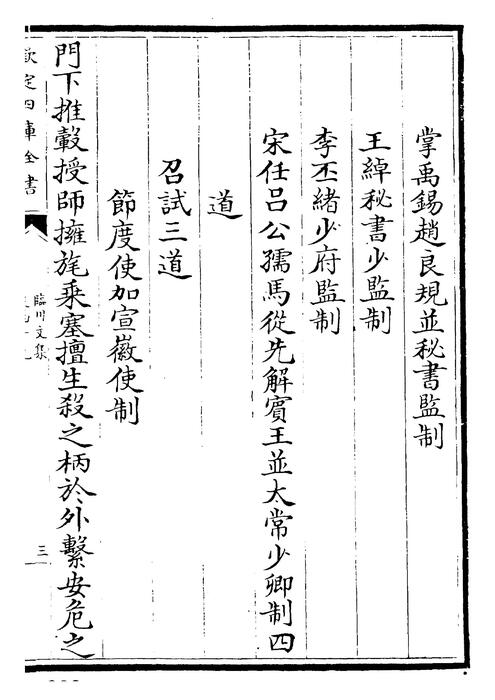 掌禹錫趙良規並秘書監制
王綽秘書少監制
李丕緒少府監制
宋任呂公孺馬從先解賓王並太常少卿制四
道
召試三道
節度使加宣徽使制
門下推轂授師擁旄乗塞擅生殺之柄於外繫安危之
欽定四庫全書
臨川文集
三